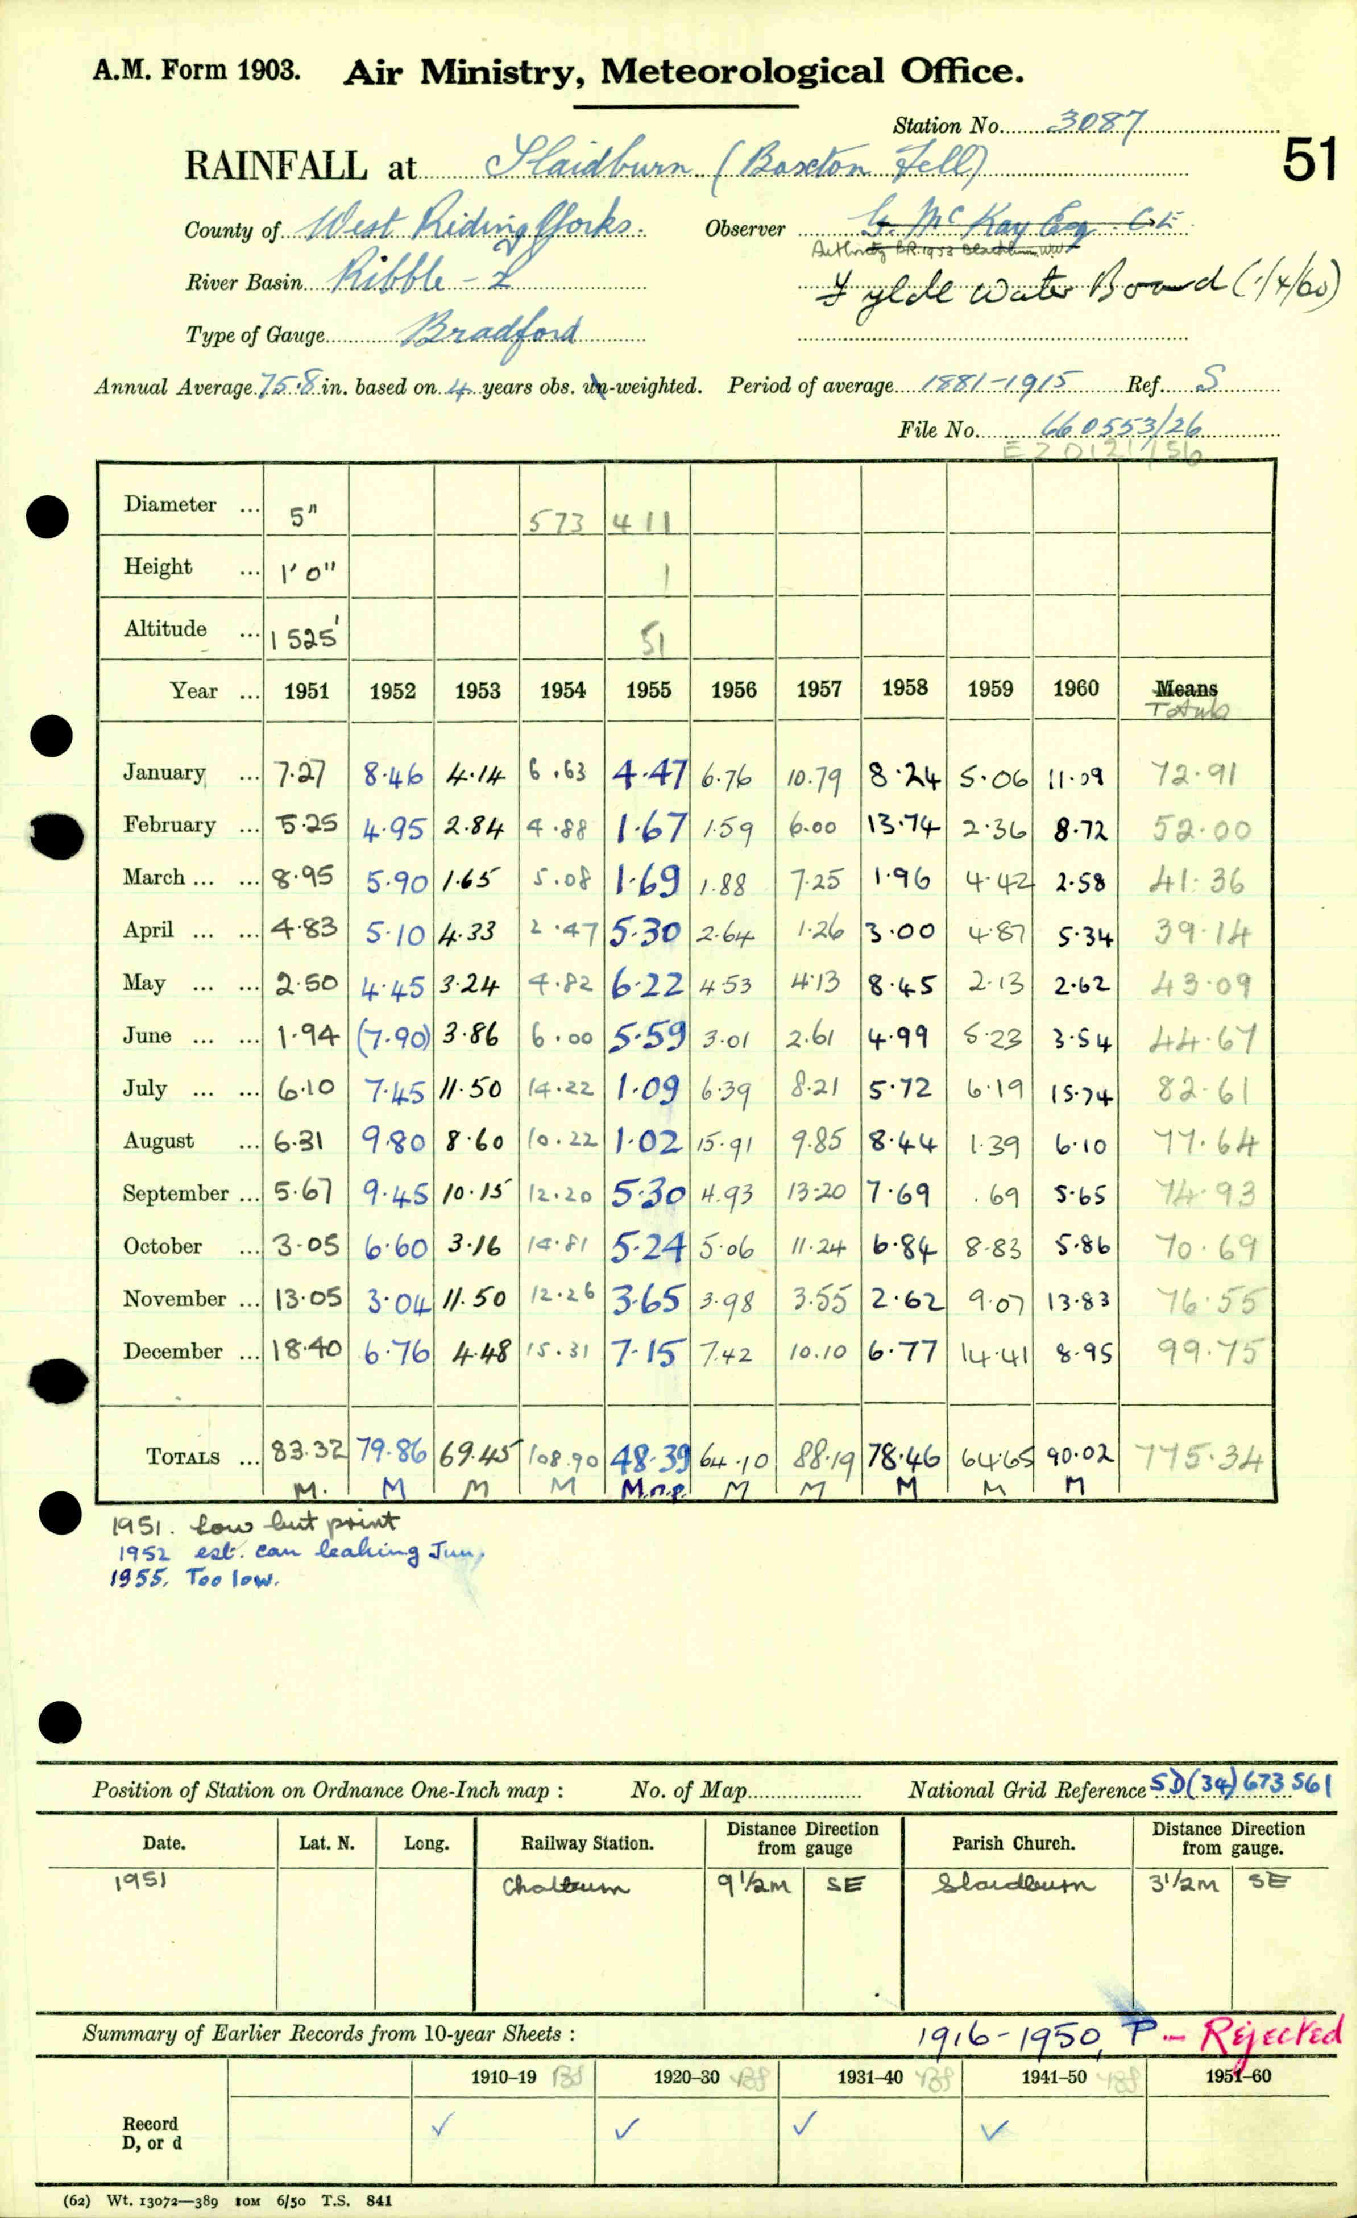 A.M. Form 1903. Air Ministry, Meteorological Office.
Station No. 3087
51
RAINFALL at Slaidburn (Baxton Fell)
County of West Riding Yorks. Observer G. McKay Esq. C.E
Authority B.R. 1953 Blackburn W.W.
River Basin Ribble - 2 Fylde Water Board (1/4/60)
Type of Gauge Bradford
Annual Average 75.8 in. based on 4 years obs. un-weighted. Period of average 1881-1915 Ref. S
File No. 660553/26
Diameter ... 5" 573 411
Height ... 1' 0" 1
Altitude ... 1525' 51
Year ... 1951 1952 1953 1954 1955 1956 1957 1958 1959 1960 Means
Totals
January ... 7.27 8.46 4.14 6.63 4.47 6.76 10.79 8.24 5.06 11.09 72.91
February ... 5.25 4.95 2.84 4.88 1.67 1.59 6.00 13.74 2.36 8.72 52.00
March ... ... 8.95 5.90 1.65 5.08 1.69 1.88 7.25 1.96 4.42 2.58 41.36
April ... ... 4.83 5.10 4.33 2.47 5.30 2.64 1.26 3.00 4.87 5.34 39.14
May ... ... 2.50 4.45 3.24 4.82 6.22 4.53 4.13 8.45 2.13 2.62 43.09
June ... ... 1.94 (7.90) 3.86 6.00 5.59 3.01 2.61 4.99 5.23 3.54 44.67
July ... ... 6.10 7.45 11.50 14.22 1.09 6.39 8.21 5.72 6.19 15.74 82.61
August ... 6.31 9.80 8.60 10.22 1.02 15.91 9.85 8.44 1.39 6.10 77.64
September ... 5.67 9.45 10.15 12.20 5.30 4.93 13.20 7.69 .69 5.65 74.93
October ... 3.05 6.60 3.16 14.81 5.24 5.06 11.24 6.84 8.83 5.86 70.69
November ... 13.05 3.04 11.50 12.26 3.65 3.98 3.55 2.62 9.07 13.83 76.55
December ... 18.40 6.76 4.48 15.31 7.15 7.42 10.10 6.77 14.41 8.95 99.75
TOTALS ... 83.32 79.86 69.45 108.90 48.39 64.10 88.19 78.46 64.65 90.02 775.34
M. M M M M.n.p. M M M M M
1951. Low but print
1952 est. can leaking Jun.
1955. Too low.
Position of Station on Ordnance One-Inch map : No. of Map National Grid Reference SD(34) 673 561
Date. Lat. N. Long. Railway Station. Distance from gauge Direction Parish Church. Distance from gauge. Direction
1951 Chatburn 9 1/2 M SE Slaidburn 3 1/2 M SE
Summary of Earlier Records from 10-year Sheets : 1916-1950, P - Rejected
1910-19 1920-30 1931-40 1941-50 1951-60
Record
D, or d ✓ ✓ ✓ ✓
(62) Wt. 13072—389 10M 6/50 T.S. 841